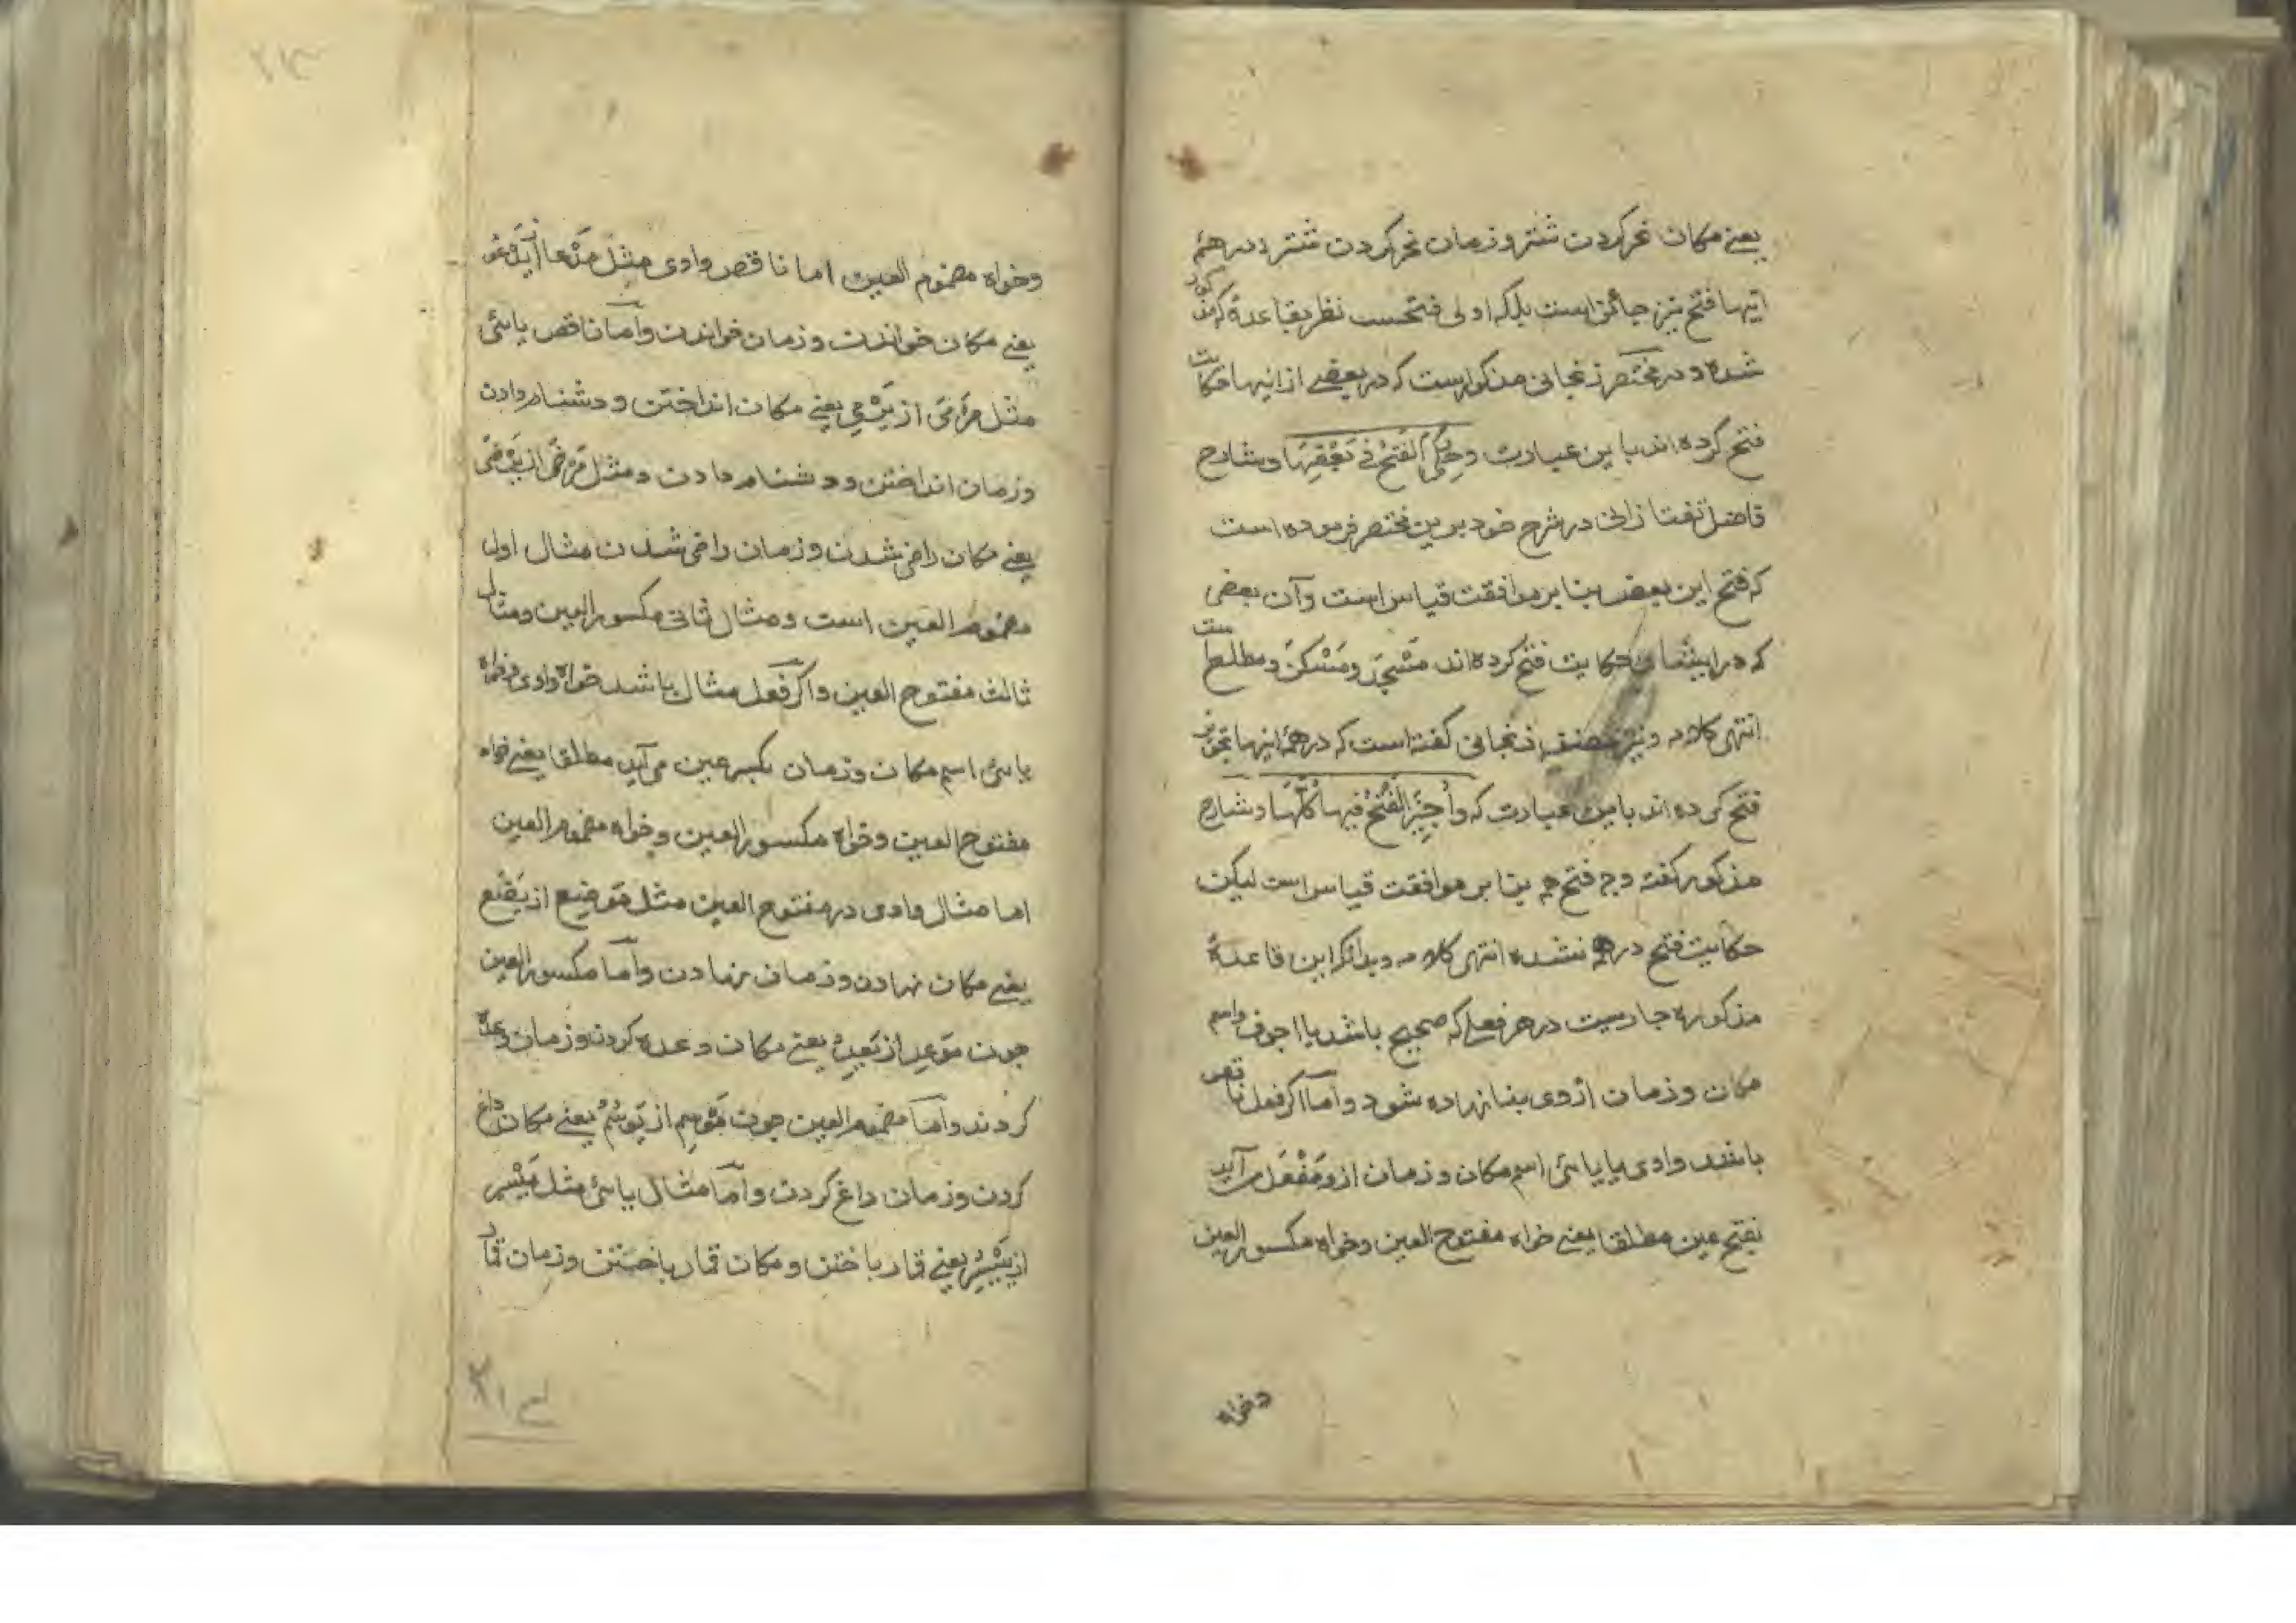 یعنے مکان نحر کردن شتر و زمان نحر کردن شتر در همهٔ
اینها فتح نیز جائز است بلکه اولی فتحست نظر بقاعدهٔ که مذکور
شده و در مختصر زنجانی مذکور است که در بعضے از اینها حکایت
فتح کرده اند باین عبارت وَحُکِیَ الفَتْحُ فِی بَعْضِهَا و شارح
فاضل تفتازانی در شرح خود برین مختصر فرموده است
که فتح این بعض بنا بر موافقت قیاس است و آن بعضی
که در ایشان حکایت فتح کرده اند مَسْجَد و مَسْکَن و مطلع است
انتهی کلامه و نیز مصنف زنجانی گفته است که در همهٔ اینها تجویز
فتح کرده اند باین عبارت که وَاُجِیْزَ الْفَتْحُ فِیهَا کُلِّهَا و شارح
مذکور گفته وجه فتح همه بنا بر موافقت قیاس است لیکن
حکایت فتح در همه نشده انتهی کلامه و بدانکه این قاعدهٔ
مذکوره جاریست در هر فعلے که صحیح باشد یا اجوف و اسم
مکان و زمان از وی بنا نهاده شود و اما اگر فعل ناقص
باشد وادی یا یائی اسم مکان و زمان ازو مَفْعَل می آید
بفتح عین مطلقا یعنے خواه مفتوح العین و خواه مکسور العین
وخواه
وخواه مضموم العین اما ناقص وادی مثل مَدْعا از یَدْعُو
یعنے مکان خواندن و زمان خواندن و اما ناقص یائی
مثل مَرْمَی از یَرْمِی یعنے مکان انداختن و دشنام دادن
و زمان انداختن و دشنام دادن و مثل مَرْضَی از یَرْضَی
یعنے مکان راضی شدن و زمان راضی شدن مثال اول
مضموم العین است و مثال ثانی مکسور العین و مثال
ثالث مفتوح العین و اگر فعل مثال باشد خواه وادی و خواه
یائی اسم مکان و زمان بکسر عین می آید مطلقا یعنے خواه
مفتوح العین و خواه مکسور العین و خواه مضموم العین
اما مثال وادی در مفتوح العین مثل مَوضِع از یَضَع
یعنے مکان نهادن و زمان نهادن و اما مکسور العین
چون مَوعِد از یَعِدُ یعنے مکان وعده کردن و زمان وعده
کردند و اما مضموم العین چون مَوْسِم از یَوْسُمُ یعنے مکان داغ
کردن و زمان داغ کردن و اما مثال یائی مثل مَیْسِر
از یَیْسِرُ یعنے قمار باختن و مکان قمار باختن و زمان قمار
۲۱۳